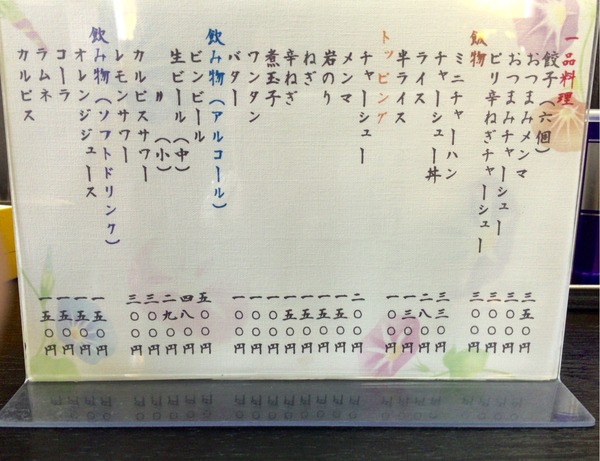 一品料理
餃子（六個） 三五〇円
おつまみメンマ 三〇〇円
おつまみチャーシュー 三〇〇円
ピリ辛ねぎチャーシュー 三〇〇円
飯物
ミニチャーハン 三三〇円
チャーシュー丼 二八〇円
ライス 一三〇円
半ライス 一〇〇円
トッピング
チャーシュー 二〇〇円
メンマ 一五〇円
岩のり 一五〇円
ねぎ 一五〇円
辛ねぎ 一五〇円
煮玉子 一〇〇円
ワンタン 一〇〇円
バター 一〇〇円
飲み物（アルコール）
ビンビール 五〇〇円
生ビール（中） 四八〇円
〃（小） 二九〇円
カルピスサワー 三〇〇円
レモンサワー 三〇〇円
飲み物（ソフトドリンク）
オレンジジュース 一五〇円
コーラ 一五〇円
ラムネ 一五〇円
カルピス 一五〇円